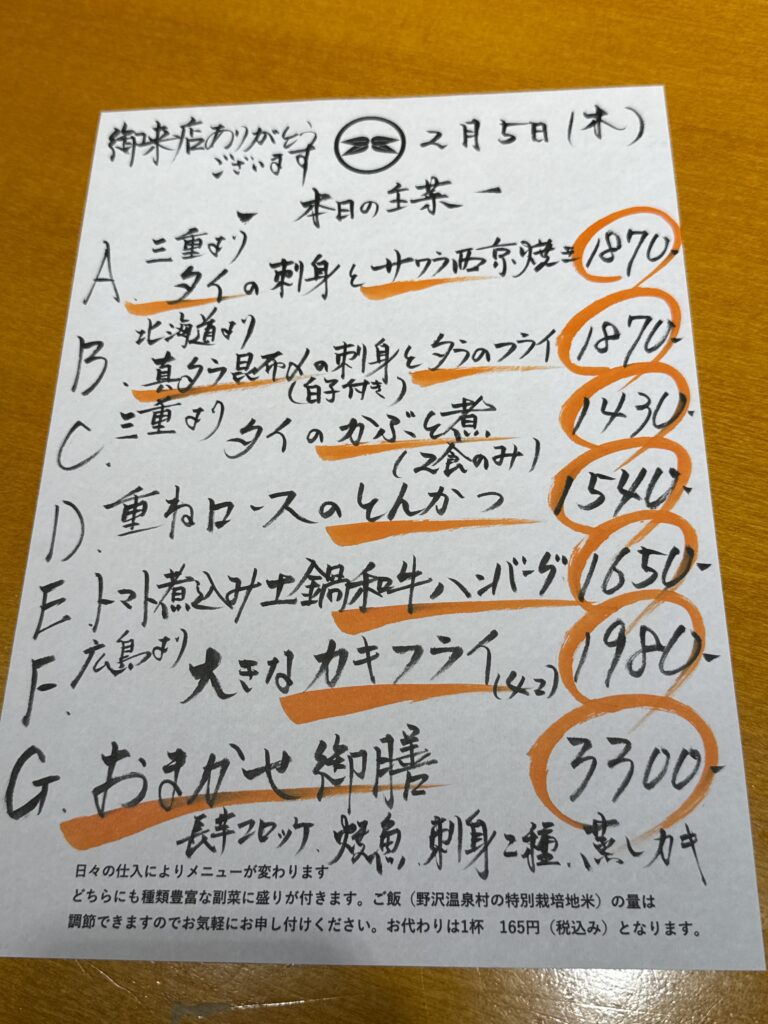 御来店ありがとう
ございます
2月5日(木)
本日の主菜
A. 三重より
タイの刺身とサワラ西京焼き 1870-
B. 北海道より
真タラ昆布〆の刺身とタラのフライ 1870-
(白子付き)
C. 三重より タイのかぶと煮 1430-
(2食のみ)
D. 重ねロースのとんかつ 1540-
E トマト煮込み土鍋和牛ハンバーグ 1650-
F. 広島より 大きなカキフライ(4コ) 1980-
G. おまかせ御膳 3300-
長芋コロッケ、焼魚、刺身二種、蒸しカキ
日々の仕入によりメニューが変わります
どちらにも種類豊富な副菜に盛りが付きます。ご飯（野沢温泉村の特別栽培地米）の量は
調節できますのでお気軽にお申し付けください。お代わりは1杯　165円（税込み）となります。